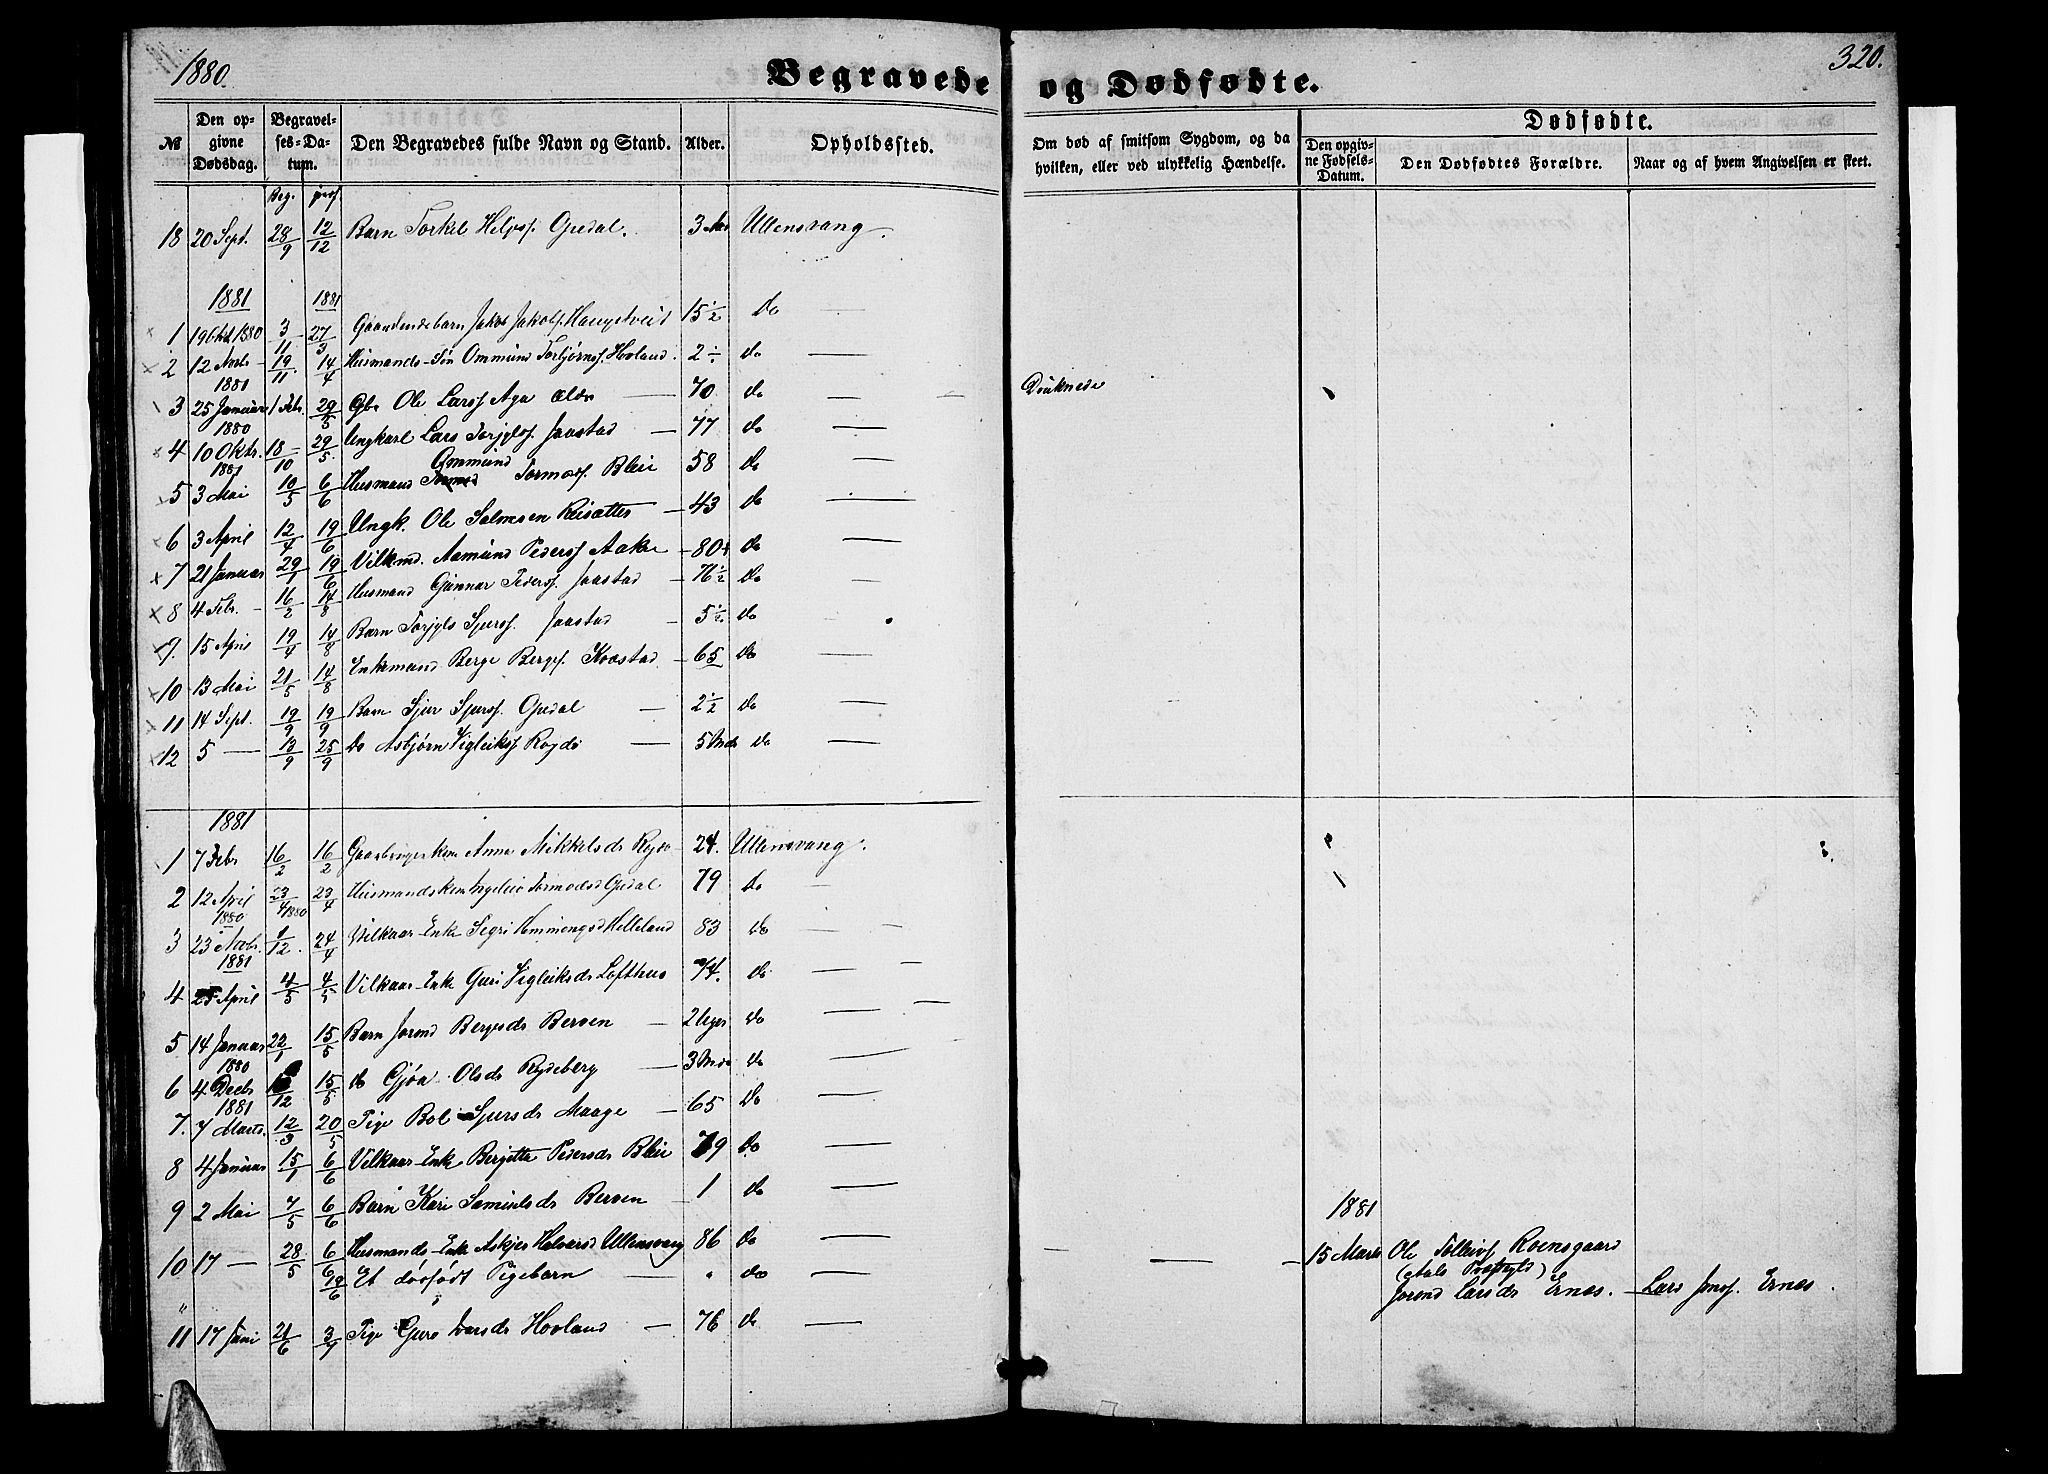 1880.
Begravede og Dødfødte.
320.
№ | Den opgivne Dødsdag. | Begravelses-Datum. | Den Begravedes fulde Navn og Stand. | Alder. | Opholdssted. | Om død af smitsom Sygdom, og da hvilken, eller ved ulykkelig Hændelse. | Dødfødte. Den opgivne Fødsels-Datum. | Den Dødfødtes Forældre. | Naar og af hvem Angivelsen er skeet.
Beg.
18 | 20 Sept. | 28/9 | 12/12 | Barn Torkel Heljes. Opedal. | 3 | Ullensvang.
1881 | 1881
1 | 19 Okt 1880 | 3/11 | 27/3 | Jakob Jakobs. | 15 1/2 | do
2 | 12 Novb | 19/11 | 14/4 | Husmands-Søn Ommund Torbjørns. Hovland. | 2 | do
1881
3 | 25 Januar | 1 Feb. | 29/5 | Gbr Ole Larss Aga ældr | 70 | do | Druknede
1880
4 | 10 Oktr. | 18/10 | 29/5 | Ungkarl Lars Torjylss. Jaastad | 77 | do
1881
5 | 3 Mai | 10/5 | 6/6 | Husmand Ommund Tormods. Bleie | 58 | do
6 | 3 April | 12/4 | 19/6 | Ungk. Ole Salmesen Reisæter | 43 | do
7 | 21 Januar | 29/1 | 19/6 | Vilkmd. Aamund Pederss Aakre | 80 | do
8 | 4 Feb. | 16/2 | 14/8 | Husmand Gunnar Peders. Jaastad | 76 1/2 | do
9. | 15 April | 19/4 | 14/8 | Barn Torjyls Sjurs. Jaastad | 5 1/2 | do
10 | 13 Mai | 21/5 | 14/8 | Enkemand Berge Berges. Kvæstad | 65 | do
11 | 14 Sept. | 19/9 | 19/9 | Barn Sjur Sjurss. Opedal | 2 1/2 | do
12 | 5 — | 13/9 | 25/9 | do Asbjørn Vigleikss Rogde | 5 Mdr | do
1881
1 | 7 Febr | 16/2 | 16/2 | Anna Mikkelsdr | 24. | Ullensvang.
2 | 12 April | 23/4 | 23/4 | Husmandskone Angelein Tormodsd Opedal | 79 | do
1880 | 1880
3 | 23 Novbr. | 1/12. | 24/4 | Vilkaar-Enke Segri Hemmingsd Helleland | 83 | do
1881
4 | April | 4/5 | 4/5 | Vilkaar-Enke Guri Vigleiksdr Lofthus | 74. | do
5 | 14 Januar | 22/1 | 15/5 | Barn Jorond Bergesdr Berven | 2 Uger | do
1880
6 | 4 Decbr | 12 | 15/5 | do Gjøa Olsdr Rejseberg | 3 Mdr | do
1881
7. | 7 Marts. | 12/3 | 20/5 | Pige Bol Sjursdr Maage | 65 | do
8 | 4 Januar | 15/1 | 6/6 | Vilkaar-Enke Bergette Pedersdr Bleie | 79 | do
9 | 2 Mai | 7/5 | 6/6 | Barn Kari Samuelsdr Berven | 1 | do
1881
10 | 17 — | 28/5 | 6/6 | Husmands-Enke Askjer Halvorsd Ullensvang | 86 | do
" | 19/6 | Et dødfødt Pigebarn | " | do | 15 Marts | Ole Tolleivs Roensgaard (Aals Præstgld) Jorond Larsdr Ernes. | Lars Jons. Ernes.
11 | 17 Juni | 21/6 | 3/7 | Pige Guro Ivarsdr Hovland | 76 | do